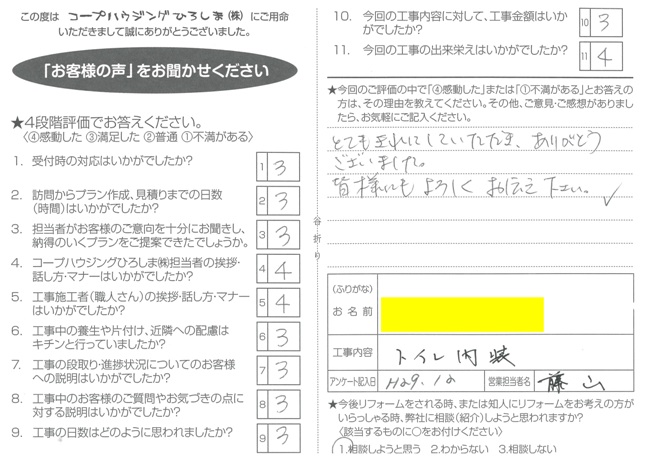 この度は コープハウジングひろしま(株) にご用命
いただきまして誠にありがとうございました。
「お客様の声」をお聞かせください
★4段階評価でお答えください。
〈④感動した ③満足した ②普通 ①不満がある〉
1. 受付時の対応はいかがでしたか? 1 3
2. 訪問からプラン作成、見積りまでの日数
(時間)はいかがでしたか? 2 3
3. 担当者がお客様のご意向を十分にお聞きし、
納得のいくプランをご提案できたでしょうか。 3 3
4. コープハウジングひろしま㈱担当者の挨拶・
話し方・マナーはいかがでしたか? 4 4
5. 工事施工者(職人さん)の挨拶・話し方・マナー
はいかがでしたか? 5 4
6. 工事中の養生や片付け、近隣への配慮は
キチンと行っていましたか? 6 3
7. 工事の段取り・進捗状況についてのお客様
への説明はいかがでしたか? 7 3
8. 工事中のお客様のご質問やお気づきの点に
対する説明はいかがでしたか? 8 3
9. 工事の日数はどのように思われましたか? 9 3
谷折り
10. 今回の工事内容に対して、工事金額はいか
がでしたか? 10 3
11. 今回の工事の出来栄えはいかがでしたか? 11 4
★今回のご評価の中で「④感動した」または「①不満がある」とお答えの
方は、その理由を教えてください。その他、ご意見・ご感想がありました
ら、お気軽にご記入ください。
とてもきれいにしていただき、ありがとう
ございました。
皆様にもよろしくお伝え下さい。
(ふりがな)
お名前
工事内容 トイレ内装
アンケート記入日 H29.12 営業担当者名 藤山
★今後リフォームをされる時、または知人にリフォームをお考えの方が
いらっしゃる時、弊社に相談(紹介)しようと思われますか?
〈該当するものに○をお付けください〉
1.相談しようと思う 2.わからない 3.相談しない